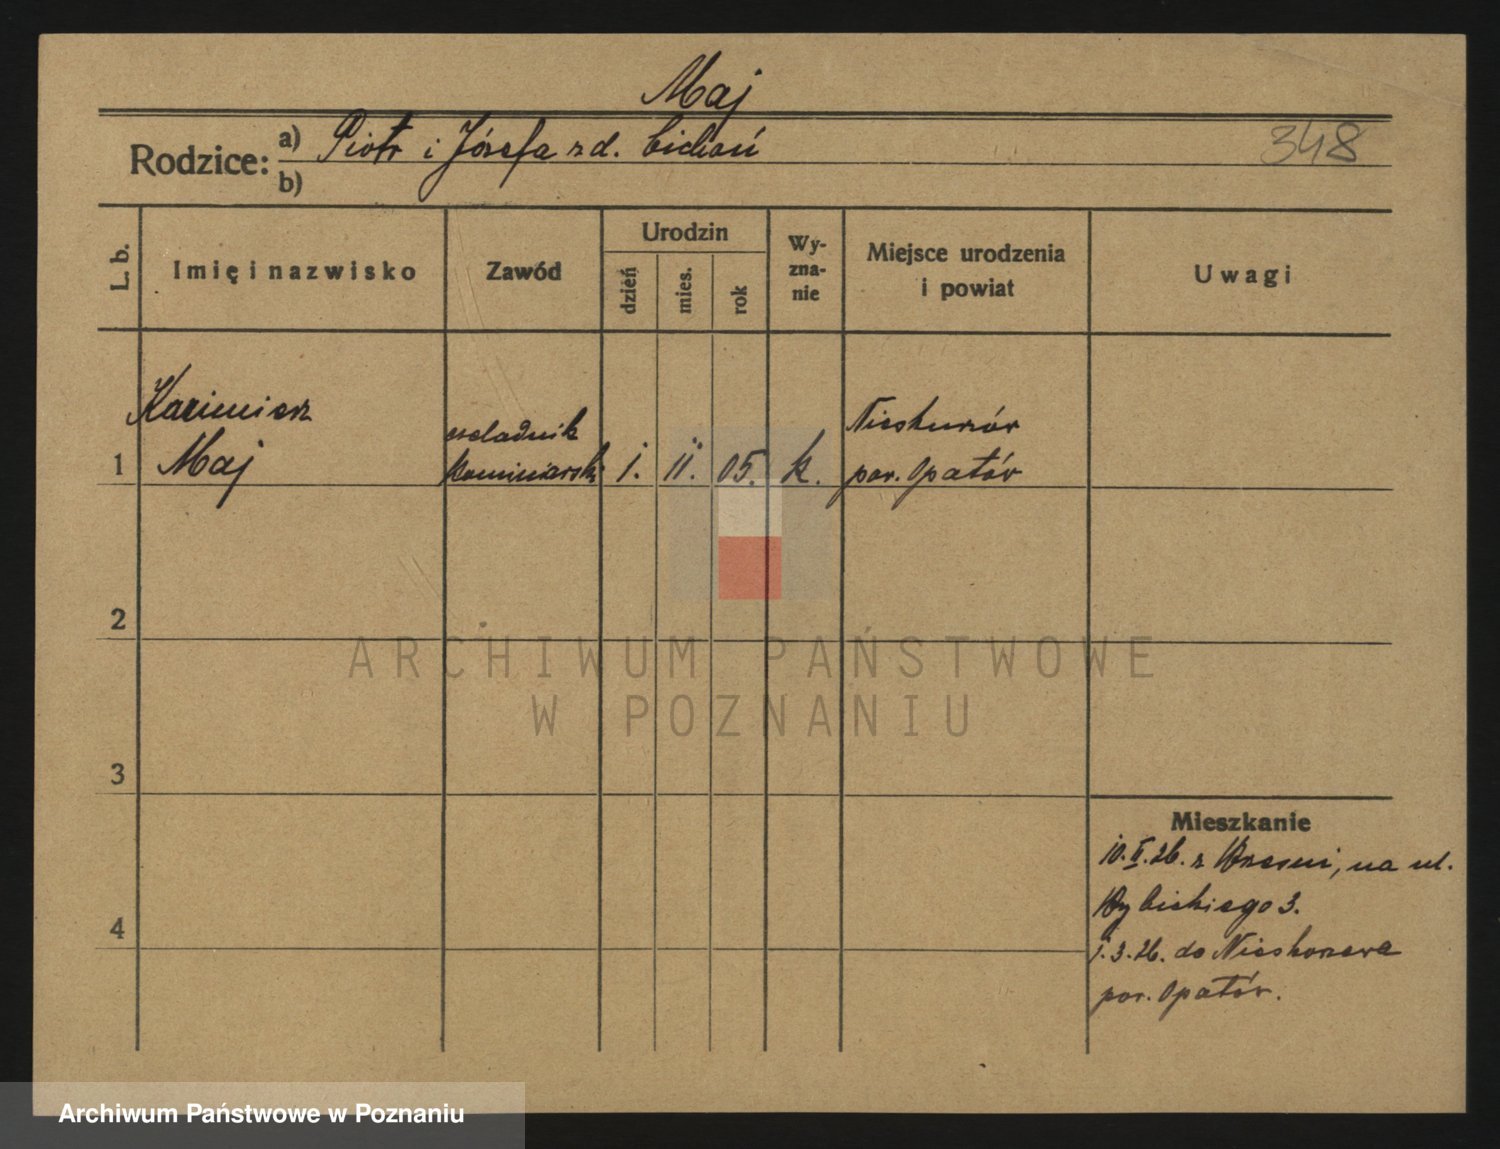 Maj
348
Rodzice: a) Piotr i Józefa z d. Cichoń
b)
L. b.
Imię i nazwisko
Zawód
Urodzin
dzień
mies.
rok
Wy-
zna-
nie
Miejsce urodzenia
i powiat
Uwagi
Kazimierz
1 Maj
czeladnik
kominiarski
1. II. 05. k.
Nieskurzów
pow. Opatów
2
3
4
Mieszkanie
10. II. 26. z Wrześni, na ul.
Wybickiego 3.
1. 3. 26. do
pow. Opatów.
ARCHIWUM PAŃSTWOWE
W POZNANIU
Archiwum Państwowe w Poznaniu